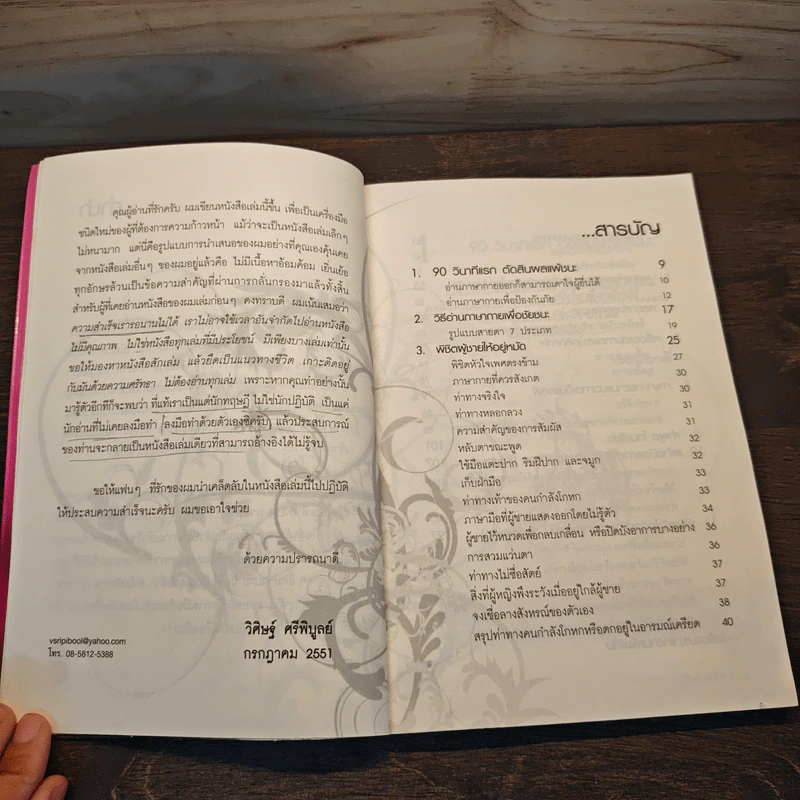 คุณผู้อ่านที่รักครับ ผมเขียนหนังสือเล่มนี้ขึ้น เพื่อเป็นเครื่องมือ
ชนิดใหม่ของผู้ที่ต้องการความก้าวหน้า แม้ว่าจะเป็นหนังสือเล่มเล็กๆ
ไม่หนามาก แต่นี่คือรูปแบบการนำเสนอของผมอย่างที่คุณเองคุ้นเคย
จากหนังสือเล่มอื่นๆ ของผมอยู่แล้วคือ ไม่มีเนื้อหาอ้อมค้อม เยิ่นเย้อ
ทุกอักษรล้วนเป็นข้อความสำคัญที่ผ่านการกลั่นกรองมาแล้วทั้งสิ้น
สำหรับผู้ที่เคยอ่านหนังสือของผมเล่มก่อนๆ คงทราบดี ผมเน้นเสมอว่า
ความสำเร็จเรารอนานไม่ได้ เราไม่อาจใช้เวลาอันจำกัดไปอ่านหนังสือ
ไม่มีคุณภาพ ไม่ใช่หนังสือทุกเล่มที่มีประโยชน์ มีเพียงบางเล่มเท่านั้น
ขอให้มองหาหนังสือสักเล่ม แล้วยึดเป็นแนวทางชีวิต เกาะติดอยู่
กับมันด้วยความศรัทธา ไม่ต้องอ่านทุกเล่ม เพราะหากคุณทำอย่างนั้น
มารู้ตัวอีกทีก็จะพบว่า ที่แท้เราเป็นแต่นักทฤษฎี ไม่ใช่นักปฏิบัติ เป็นแค่
นักอ่านที่ไม่เคยลงมือทำ (ลงมือทำด้วยตัวเองซิครับ) แล้วประสบการณ์
ของท่านจะกลายเป็นหนังสือเล่มเดียวที่สามารถอ้างอิงได้ไม่รู้จบ
ขอให้แฟนๆ ที่รักของผมนำเคล็ดลับในหนังสือเล่มนี้ไปปฏิบัติ
ให้ประสบความสำเร็จนะครับ ผมขอเอาใจช่วย
ด้วยความปรารถนาดี
วิศิษฐ์ ศรีพิบูลย์
กรกฎาคม 2551
vsripibool@yahoo.com
โทร. 08-5812-5388
...สารบัญ
1. 90 วินาทีแรก ตัดสินผลแพ้ชนะ 9
อ่านภาษากายออกก็สามารถเดาใจผู้อื่นได้ 10
อ่านภาษากายเพื่อป้องกันภัย 12
2. วิธีอ่านภาษากายเพื่อชัยชนะ 17
รูปแบบสายตา 7 ประเภท 19
3. พิชิตผู้ชายให้อยู่หมัด 25
พิชิตหัวใจเพศตรงข้าม 27
ภาษากายที่ควรสังเกต 30
ท่าทางจริงใจ 30
ท่าทางหลอกลวง 31
ความสำคัญของการสัมผัส 31
หลับตาขณะพูด 32
ใช้มือแตะปาก ริมฝีปาก และจมูก 32
เก็บฝ่ามือ 33
ท่าทางเท้าของคนกำลังโกหก 33
ภาษามือที่ผู้ชายแสดงออกโดยไม่รู้ตัว 34
ผู้ชายไว้หนวดเพื่อกลบเกลื่อน หรือปิดบังอาการบางอย่าง 36
การสวมแว่นตา 36
ท่าทางไม่ซื่อสัตย์ 37
สิ่งที่ผู้หญิงพึงระวังเมื่ออยู่ใกล้ผู้ชาย 37
จงเชื่อลางสังหรณ์ของตัวเอง 38
สรุปท่าทางคนกำลังโกหกหรือตกอยู่ในอารมณ์เครียด 40